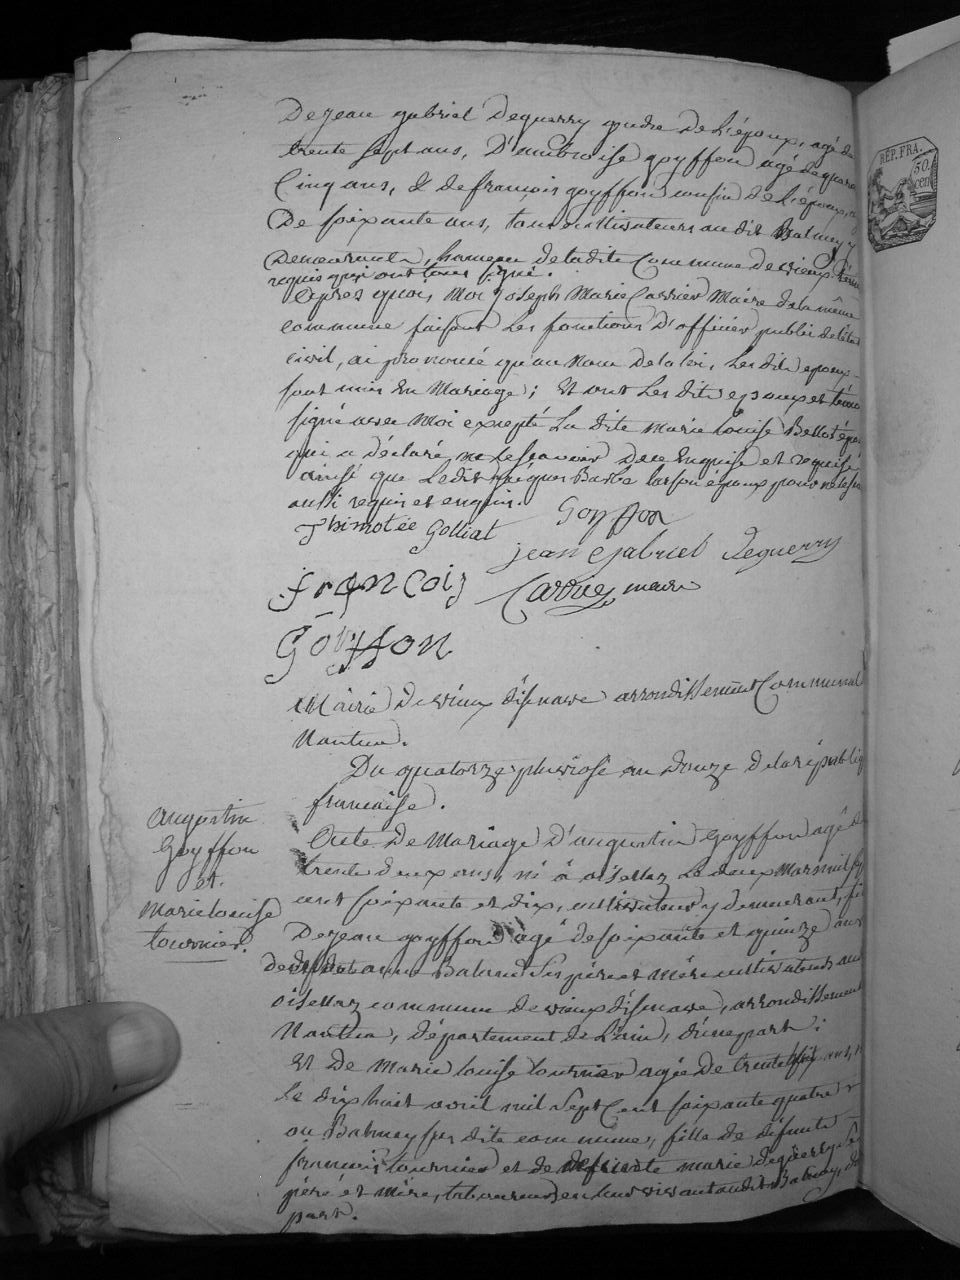 De jean gabriel Deguerry gendre de L'époux, agé de
trente sept ans, D'ambroise goyffon agé de quara
Cinq ans, & de françois goyffon cousin de L'époux, a
De soixante ans, tous cultivateurs au dit Balmay y
Demeurants, hameau de ladite Commune de vieux
requis qui ont tous signé.
Après quoi, Moi joseph Marie Carrier Maire de la même
commune faisant Les fonctions D'officier public de l'état
civil, ai prononcé qu'au Nom de la loi, Les dits epoux
sont unis En Mariage; Et ont Les dits epoux et témo
signé avec Moi excepté La dite Marie Louise
qui a déclaré ne le scavoir De ce Enquise et requise
ainsi que Ledit jacques époux pour ne le sca
aussi requis et enquis.
Thimotée Golliat Goyffon
jean Gabriel Deguerry
françois Carrier maire
Goyffon
Mairie De vieux d'isenave arrondissement Communal
Nantua.
Du quatorze pluviose an Douze de la républiq
française.
Augustin
Goyffon
et
Marie louise
tournier.
Acte De Mariage D'augustin Goyffon agé de
trente deux ans, né à oisellaz Le deux Mars mil sept
cent soixante et dix, cultivateur y demeurant, fils
De jean goyffon agé de soixante et quinze ans
de anne Baland ses père et mère cultivateurs au
oisellaz commune de vieux d'isenave, arrondissement
Nantua, département de L'ain, d'une part;
Et De Marie louise tournier agée De trente ans,
Le dix huit avril mil sept Cent soixante quatre
au Balmay sus dite commune, fille de défunts
françois tournier et de marie deguerry ses
père et mère, vivant au dit Balmay, d'
part.
RÉP. FRA.
50
cen